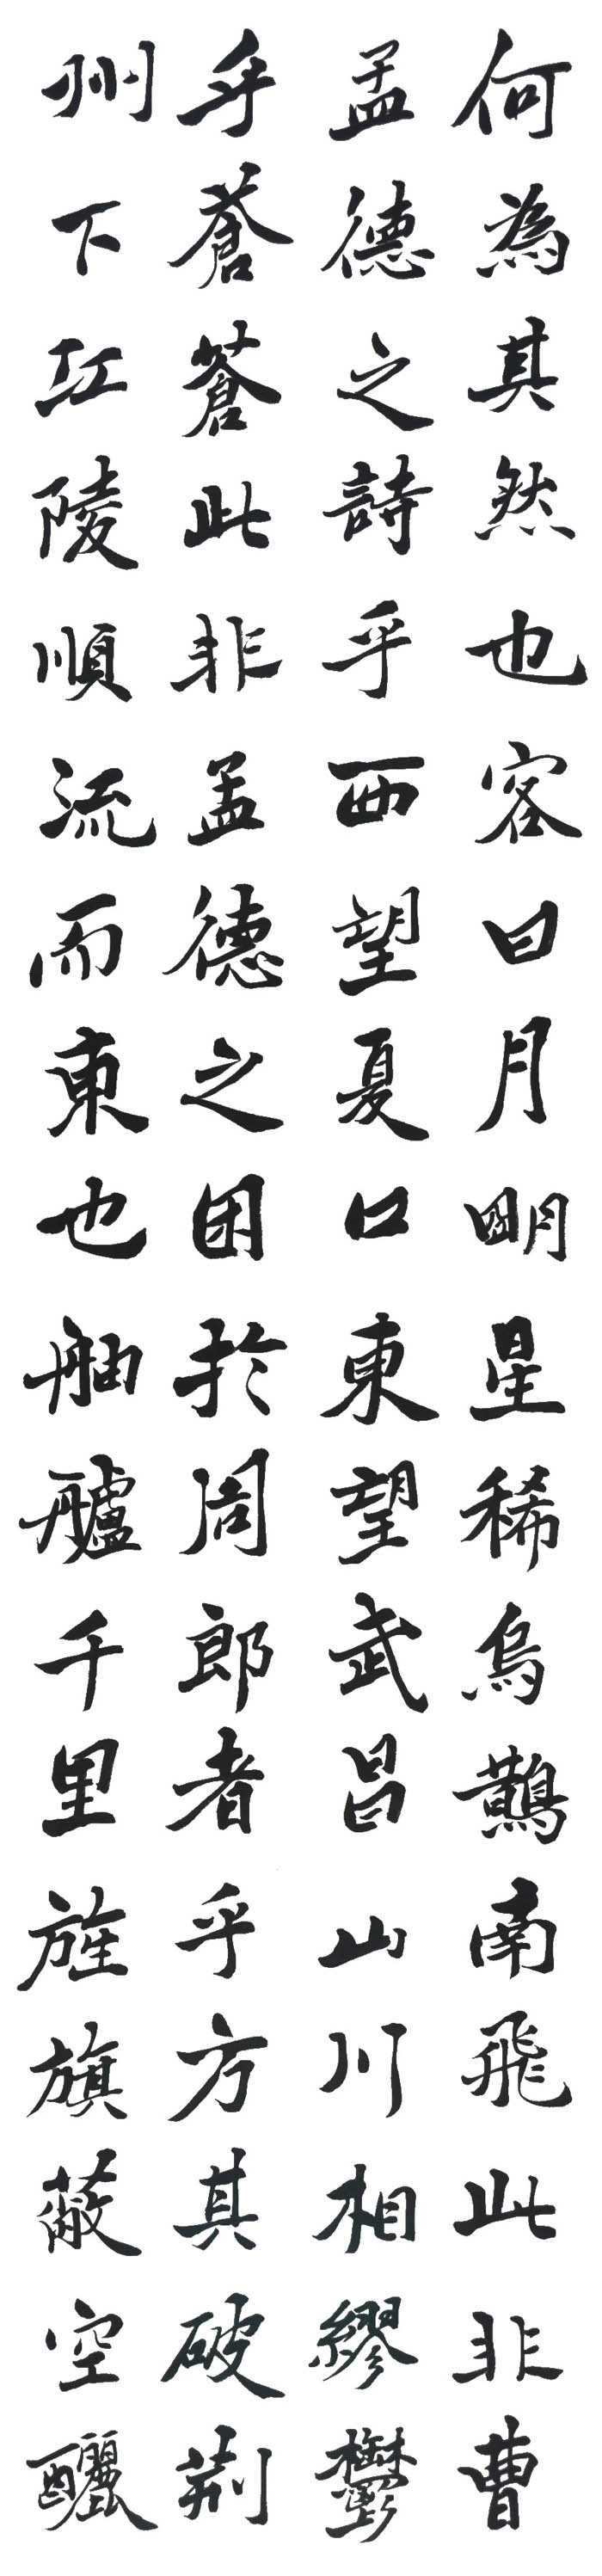 何為其然也客曰月明星稀烏鵲南飛此非曹
孟德之詩乎西望夏口東望武昌山川相繆鬱
乎蒼蒼此非孟德之困於周郎者乎方其破荊
州下江陵順流而東也舳艫千里旌旗蔽空釃